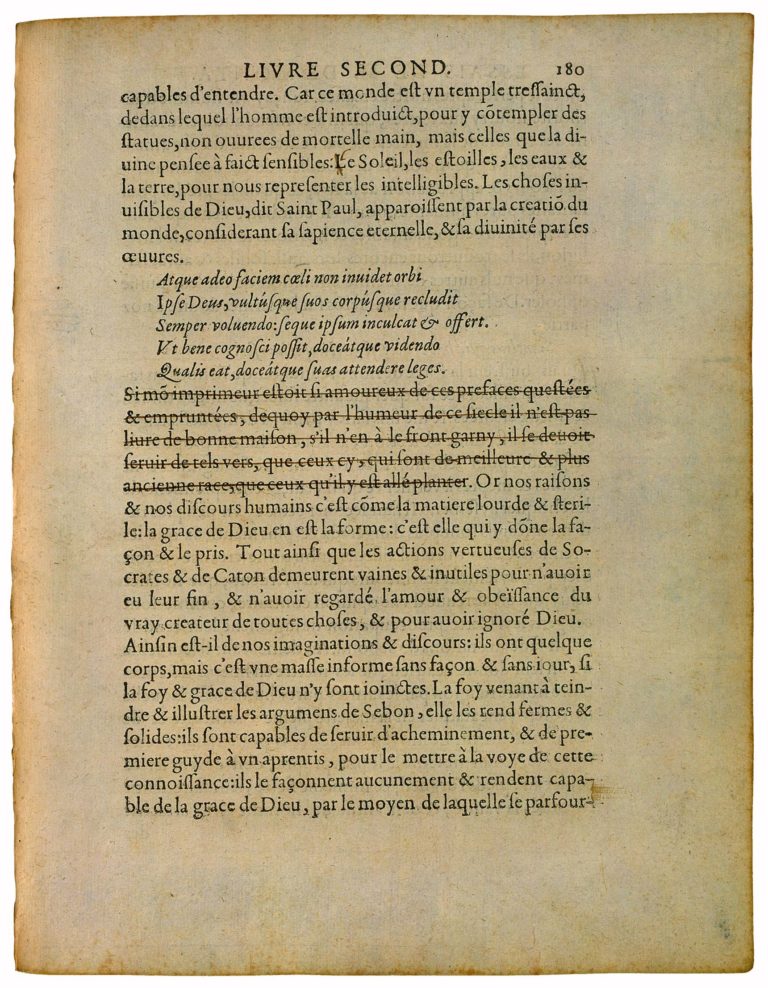 LIVRE SECOND. 180
capables d'entendre. Car ce monde eſt vn temple treſſainct,
dedans lequel l'homme eſt introduict, pour y cõtempler des
ſtatues, non ouurees de mortelle main, mais celles que la di-
uine penſee à faict ſenſibles: Le Soleil, les eſtoilles, les eaux &
la terre, pour nous repreſenter les intelligibles. Les choſes in-
uiſibles de Dieu, dit Saint Paul, apparoiſſent par la creatiõ du
monde, conſiderant ſa ſapience eternelle, & ſa diuinité par ſes
œuures.
Atque adeo faciem cœli non inuidet orbi
Ipſe Deus, vultúſque ſuos corpúſque recludit
Semper voluendo: ſeque ipſum inculcat & offert.
Vt bene cognoſci poſſit, doceátque videndo
Qualis eat, doceátque ſuas attendere leges.
Si mõ imprimeur eſtoit ſi amoureux de ces prefaces queſtées
& empruntées, dequoy par l'humeur de ce ſiecle il n'eſt pas
liure de bonne maiſon, s'il n'en à le front garny, il ſe deuoit
ſeruir de tels vers, que ceux cy, qui ſont de meilleure & plus
ancienne race, que ceux qu'il y eſt allé planter. Or nos raiſons
& nos diſcours humains c'eſt cõme la matiere lourde & ſteri-
le: la grace de Dieu en eſt la forme: c'eſt elle qui y dõne la fa-
çon & le pris. Tout ainſi que les actions vertueuſes de So-
crates & de Caton demeurent vaines & inutiles pour n'auoir
eu leur fin, & n'auoir regardé l'amour & obeïſſance du
vray createur de toutes choſes, & pour auoir ignoré Dieu.
Ainſin eſt-il de nos imaginations & diſcours: ils ont quelque
corps, mais c'eſt vne maſſe informe ſans façon & ſans iour, ſi
la foy & grace de Dieu n'y ſont ioinctes. La foy venant à tein-
dre & illuſtrer les argumens de Sebon, elle les rend fermes &
ſolides: ils ſont capables de ſeruir d'acheminement, & de pre-
miere guyde à vn aprentis, pour le mettre à la voye de cette
connoiſſance: ils le façonnent aucunement & rendent capa-
ble de la grace de Dieu, par le moyen de laquelle ſe parfour-